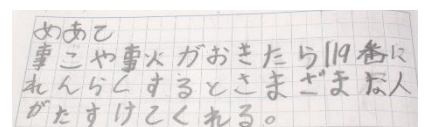 めあて
事こや事火がおきたら119番に
れんらくするとさまざまな人
がたすけてくれる。